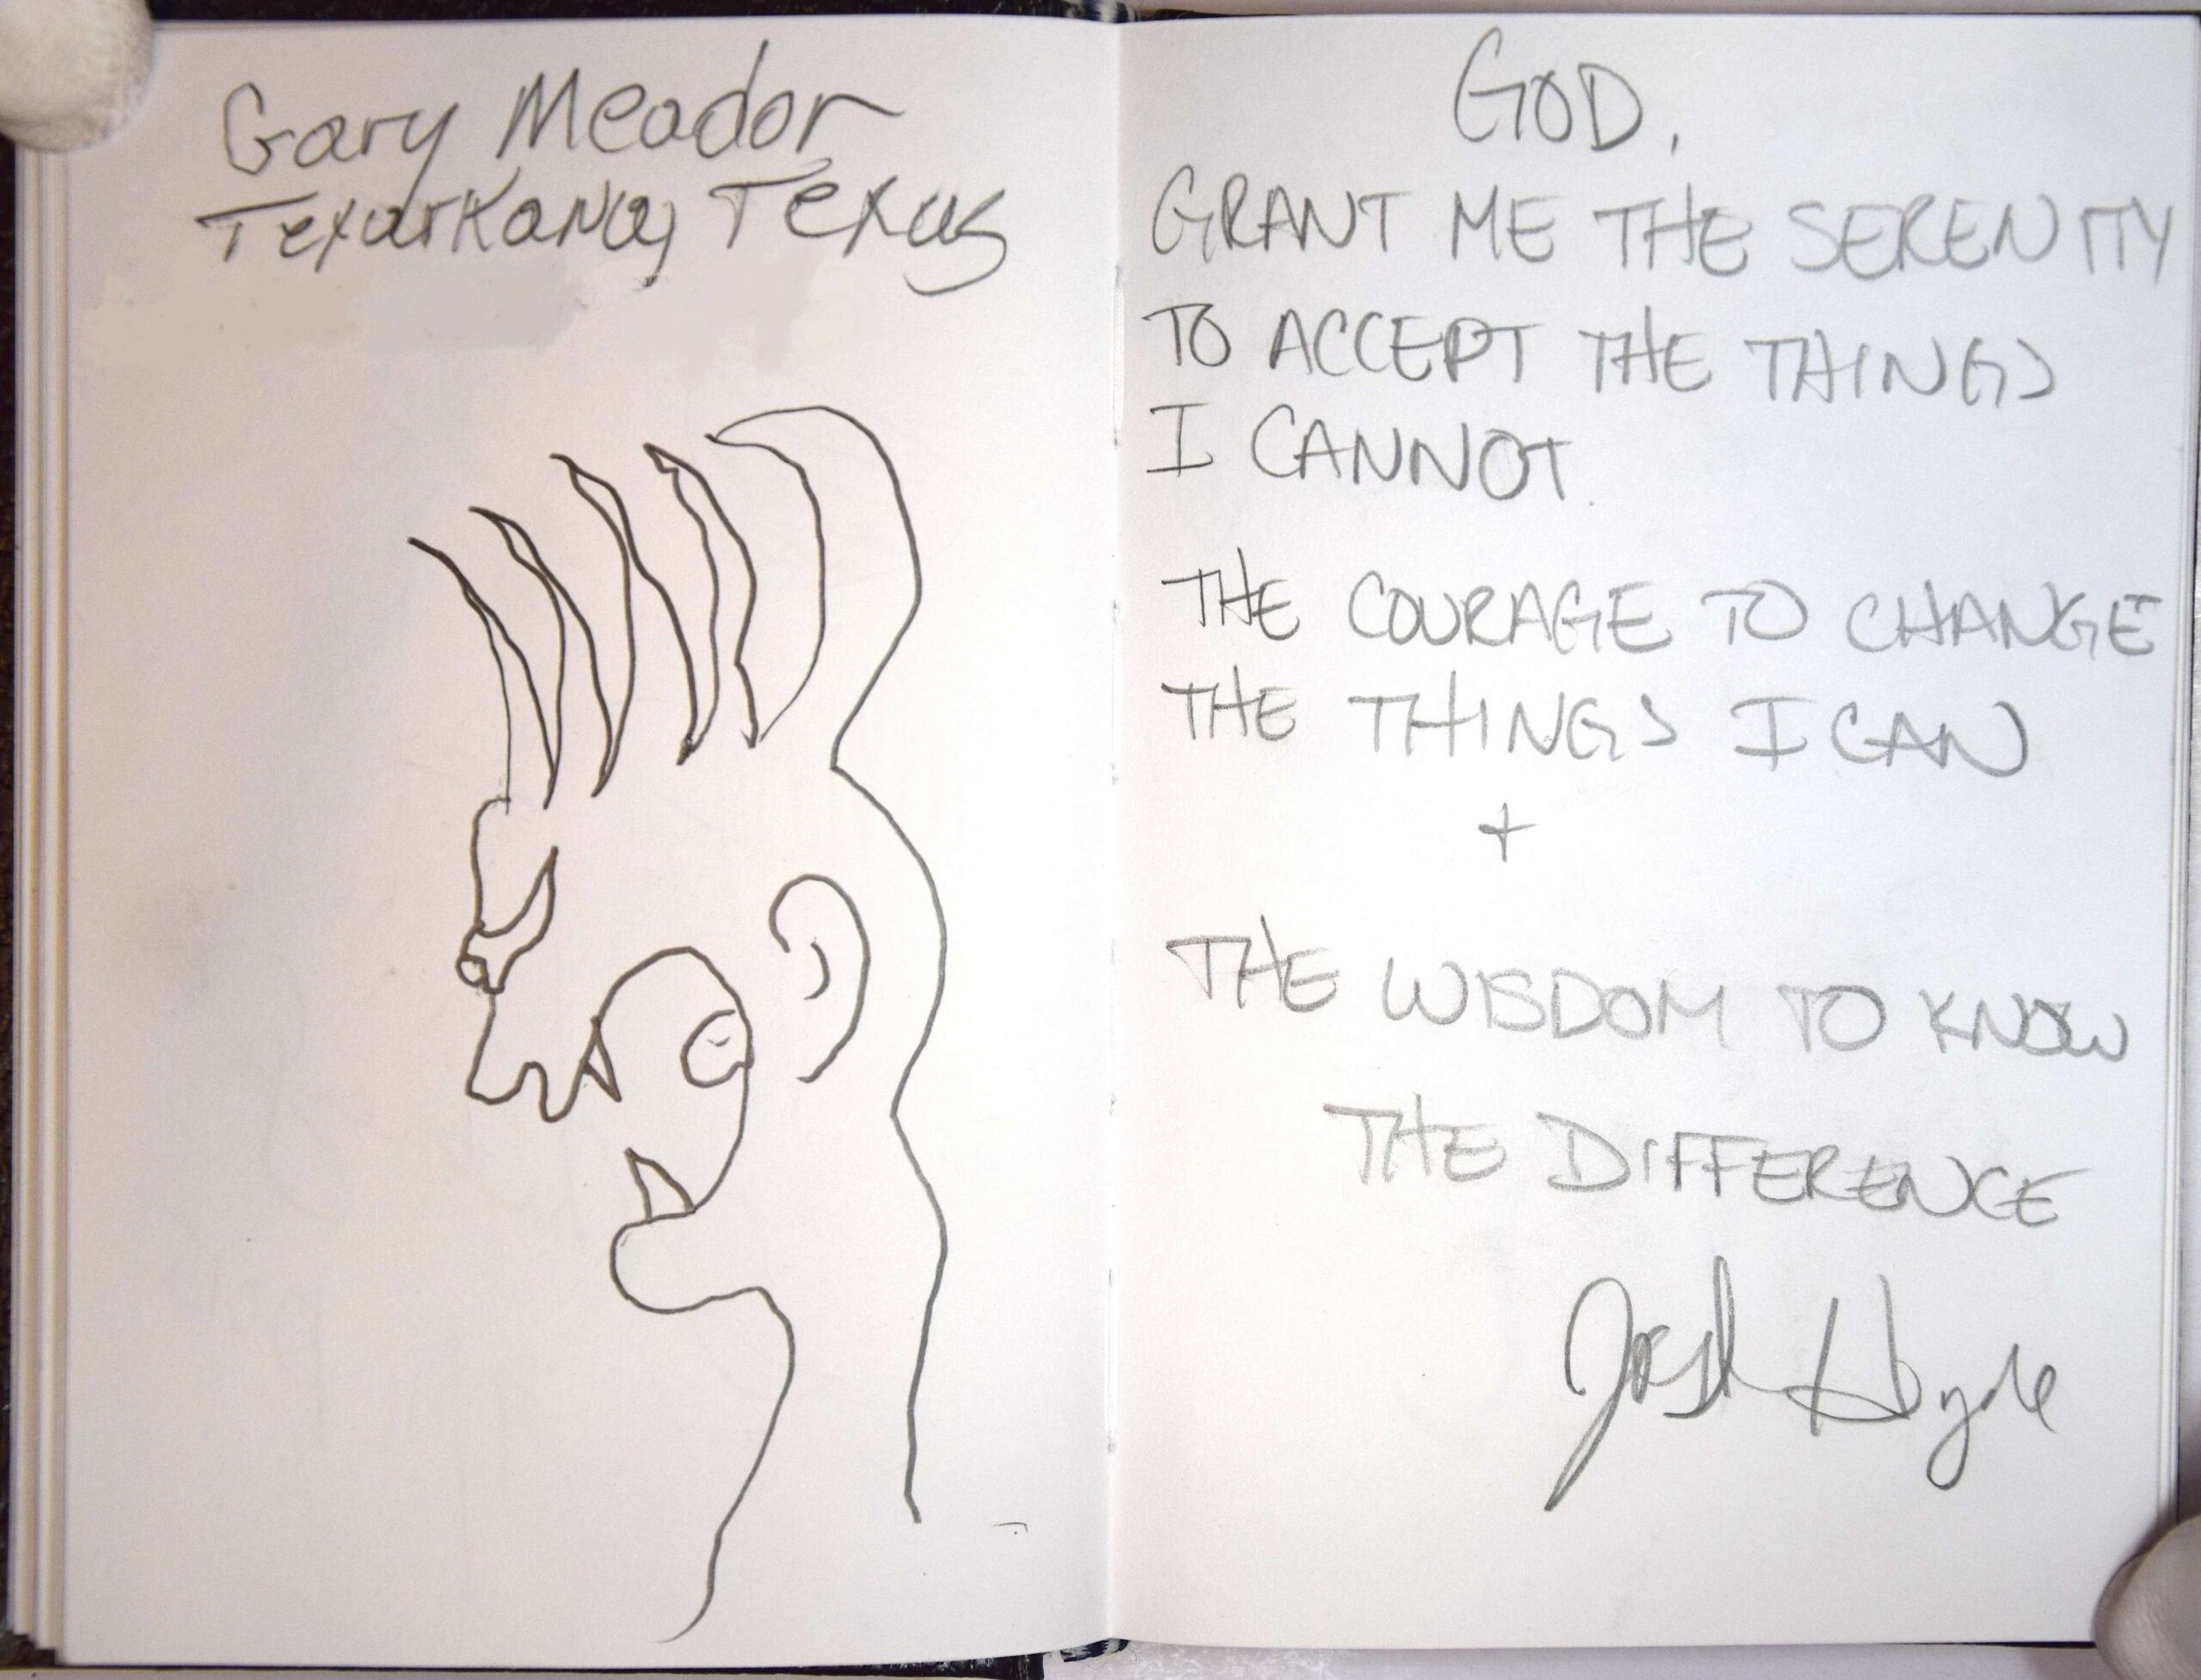 Gary Meador
Texarkana, Texas
GOD,
GRANT ME THE SERENITY
TO ACCEPT THE THINGS
I CANNOT.
THE COURAGE TO CHANGE
THE THINGS I CAN
+
THE WISDOM TO KNOW
THE DIFFERENCE
Josh Hyde